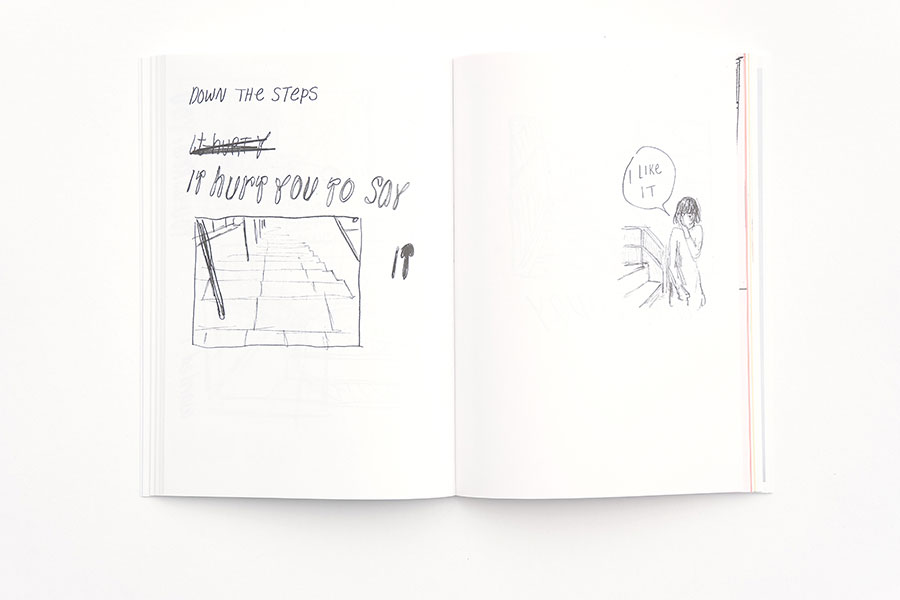 DOWN THE STEPS
It HURT Y
IT HURT YOU TO SAY
IT
I LIKE
IT